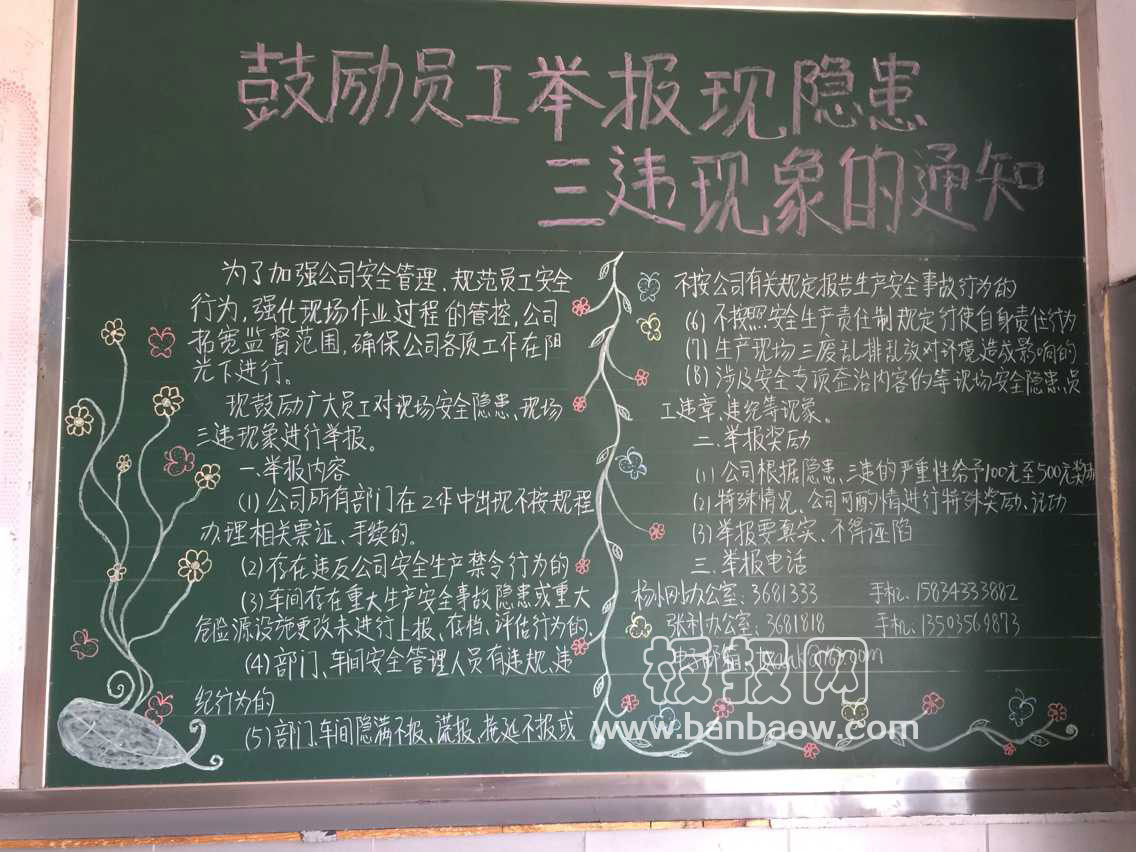 鼓励员工举报现隐患
三违现象的通知
为了加强公司安全管理、规范员工安全
行为,强化现场作业过程的管控,公司
拓宽监督范围,确保公司各项工作在阳
光下进行。
现鼓励广大员工对现场安全隐患、现场
三违现象进行举报。
一、举报内容
(1)公司所有部门在工作中出现不按规程
办理相关票证、手续的。
(2)存在违反公司安全生产禁令行为的
(3)车间存在重大生产安全事故隐患或重大
危险源设施更改未进行上报、存档、评估行为的、
(4)部门、车间安全管理人员有违规、违
纪行为的
(5)部门、车间隐满不报、谎报、拖延不报或
不按公司有关规定报告生产安全事故行为的
(6)不按照安全生产责任制规定行使自身责任行为
(7)生产现场三废乱排乱放对环境造成影响的
(8)涉及安全专项整治内容的等现场安全隐患、员
工违章、违纪等现象。
二、举报奖励
(1)公司根据隐患、三违的严重性给予100元至500元奖励
(2)特殊情况、公司可酌情进行特殊奖励、记功
(3)举报要真实、不得诬陷
三、举报电话
办公室:3681333 手机:15834333882
张利办公室:3681818 手机:13503569873
电子邮箱:
板报网
www.banbaow.com